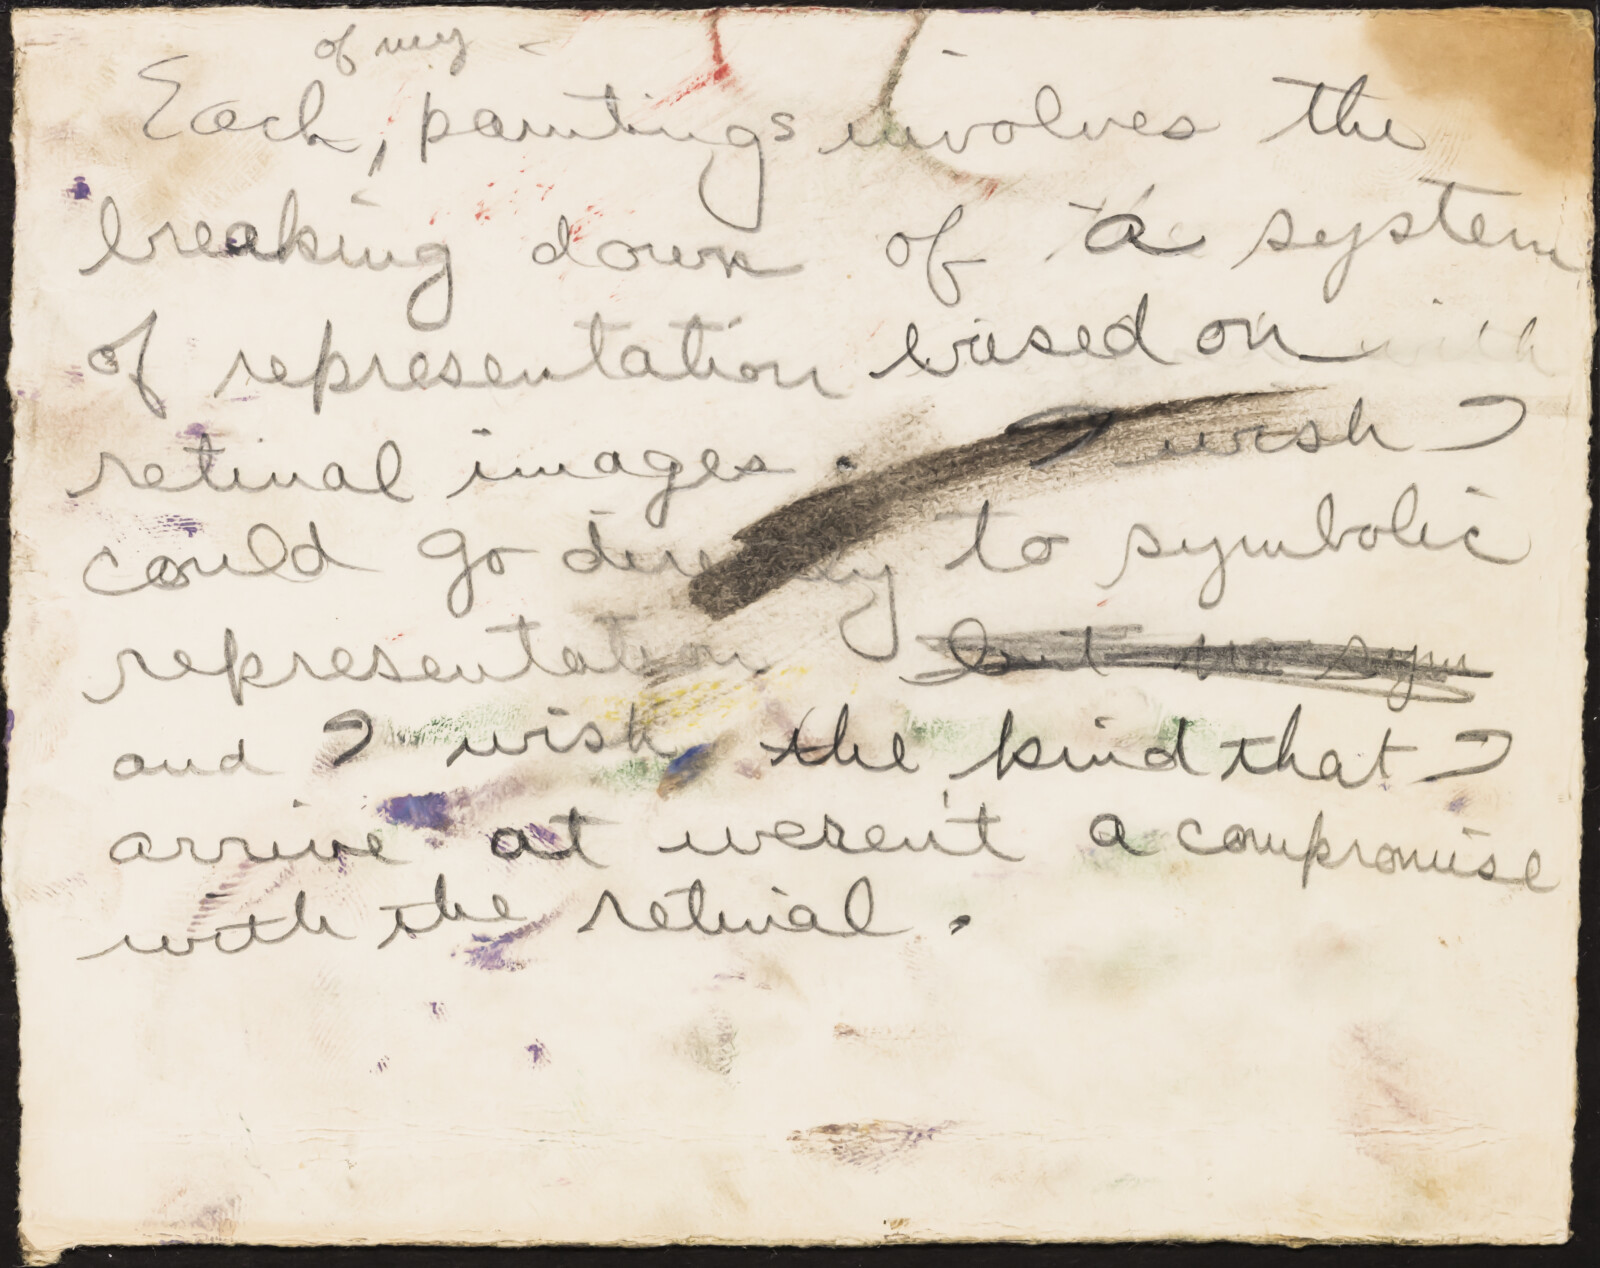 of my
Each, paintings involves the
breaking down of a system
of representation based on with
retinal images. I wish I
could go directly to symbolic
representation but no sym
and I wish the kind that I
arrive at weren't a compromise
with the retinal.